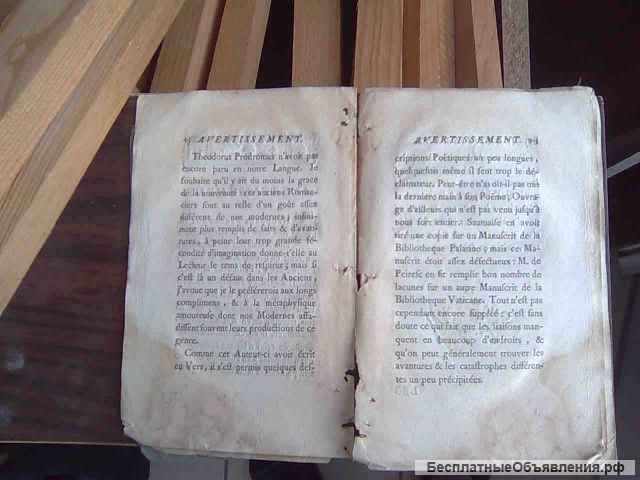 AVERTISSEMENT.
Theodorus Prodromus n'avoit pas
encore paru en notre Langue. Je
souhaite qu'il y ait du moins la grace
de la nouveauté: ces anciens Roman-
ciers sont au reste d'un goût assez
différent de nos modernes; infiniment
plus remplis de faits & d'avan-
tures, à peine leur trop grande fé-
condité d'imagination donne-t'elle au
Lecteur le tems de respirer; mais si
c'est là un défaut dans les Anciens,
j'avoue que je le préférerois aux longs
complimens, & à la métaphysique
amoureuse dont nos Modernes affa-
dissent souvent leurs productions de ce
genre.
Comme cet Auteur-ci avoit écrit
en Vers, il s'est permis quelques des-
AVERTISSEMENT.
criptions Poëtiques un peu longues,
quelquefois même il sent trop le dé-
clamateur. Peut-être n'a-t-il pas mis
la derniere main à son Poëme, Ouvra-
ge d'ailleurs qui n'est pas venu jusqu'à
nous fort entier. Saumaise en avoit
tiré une copie sur un Manuscrit de la
Bibliotheque Palatine; mais ce Ma-
nuscrit étoit assez défectueux: M. de
Peiresc en fit remplir bon nombre de
lacunes sur un autre Manuscrit de la
Bibliotheque Vaticane. Tout n'est pas
cependant encore suppléé; c'est sans
doute ce qui fait que les liaisons man-
quent en beaucoup d'endroits, &
qu'on peut généralement trouver les
avantures & les catastrophes différen-
tes un peu précipitées.
БесплатныеОбъявления.рф